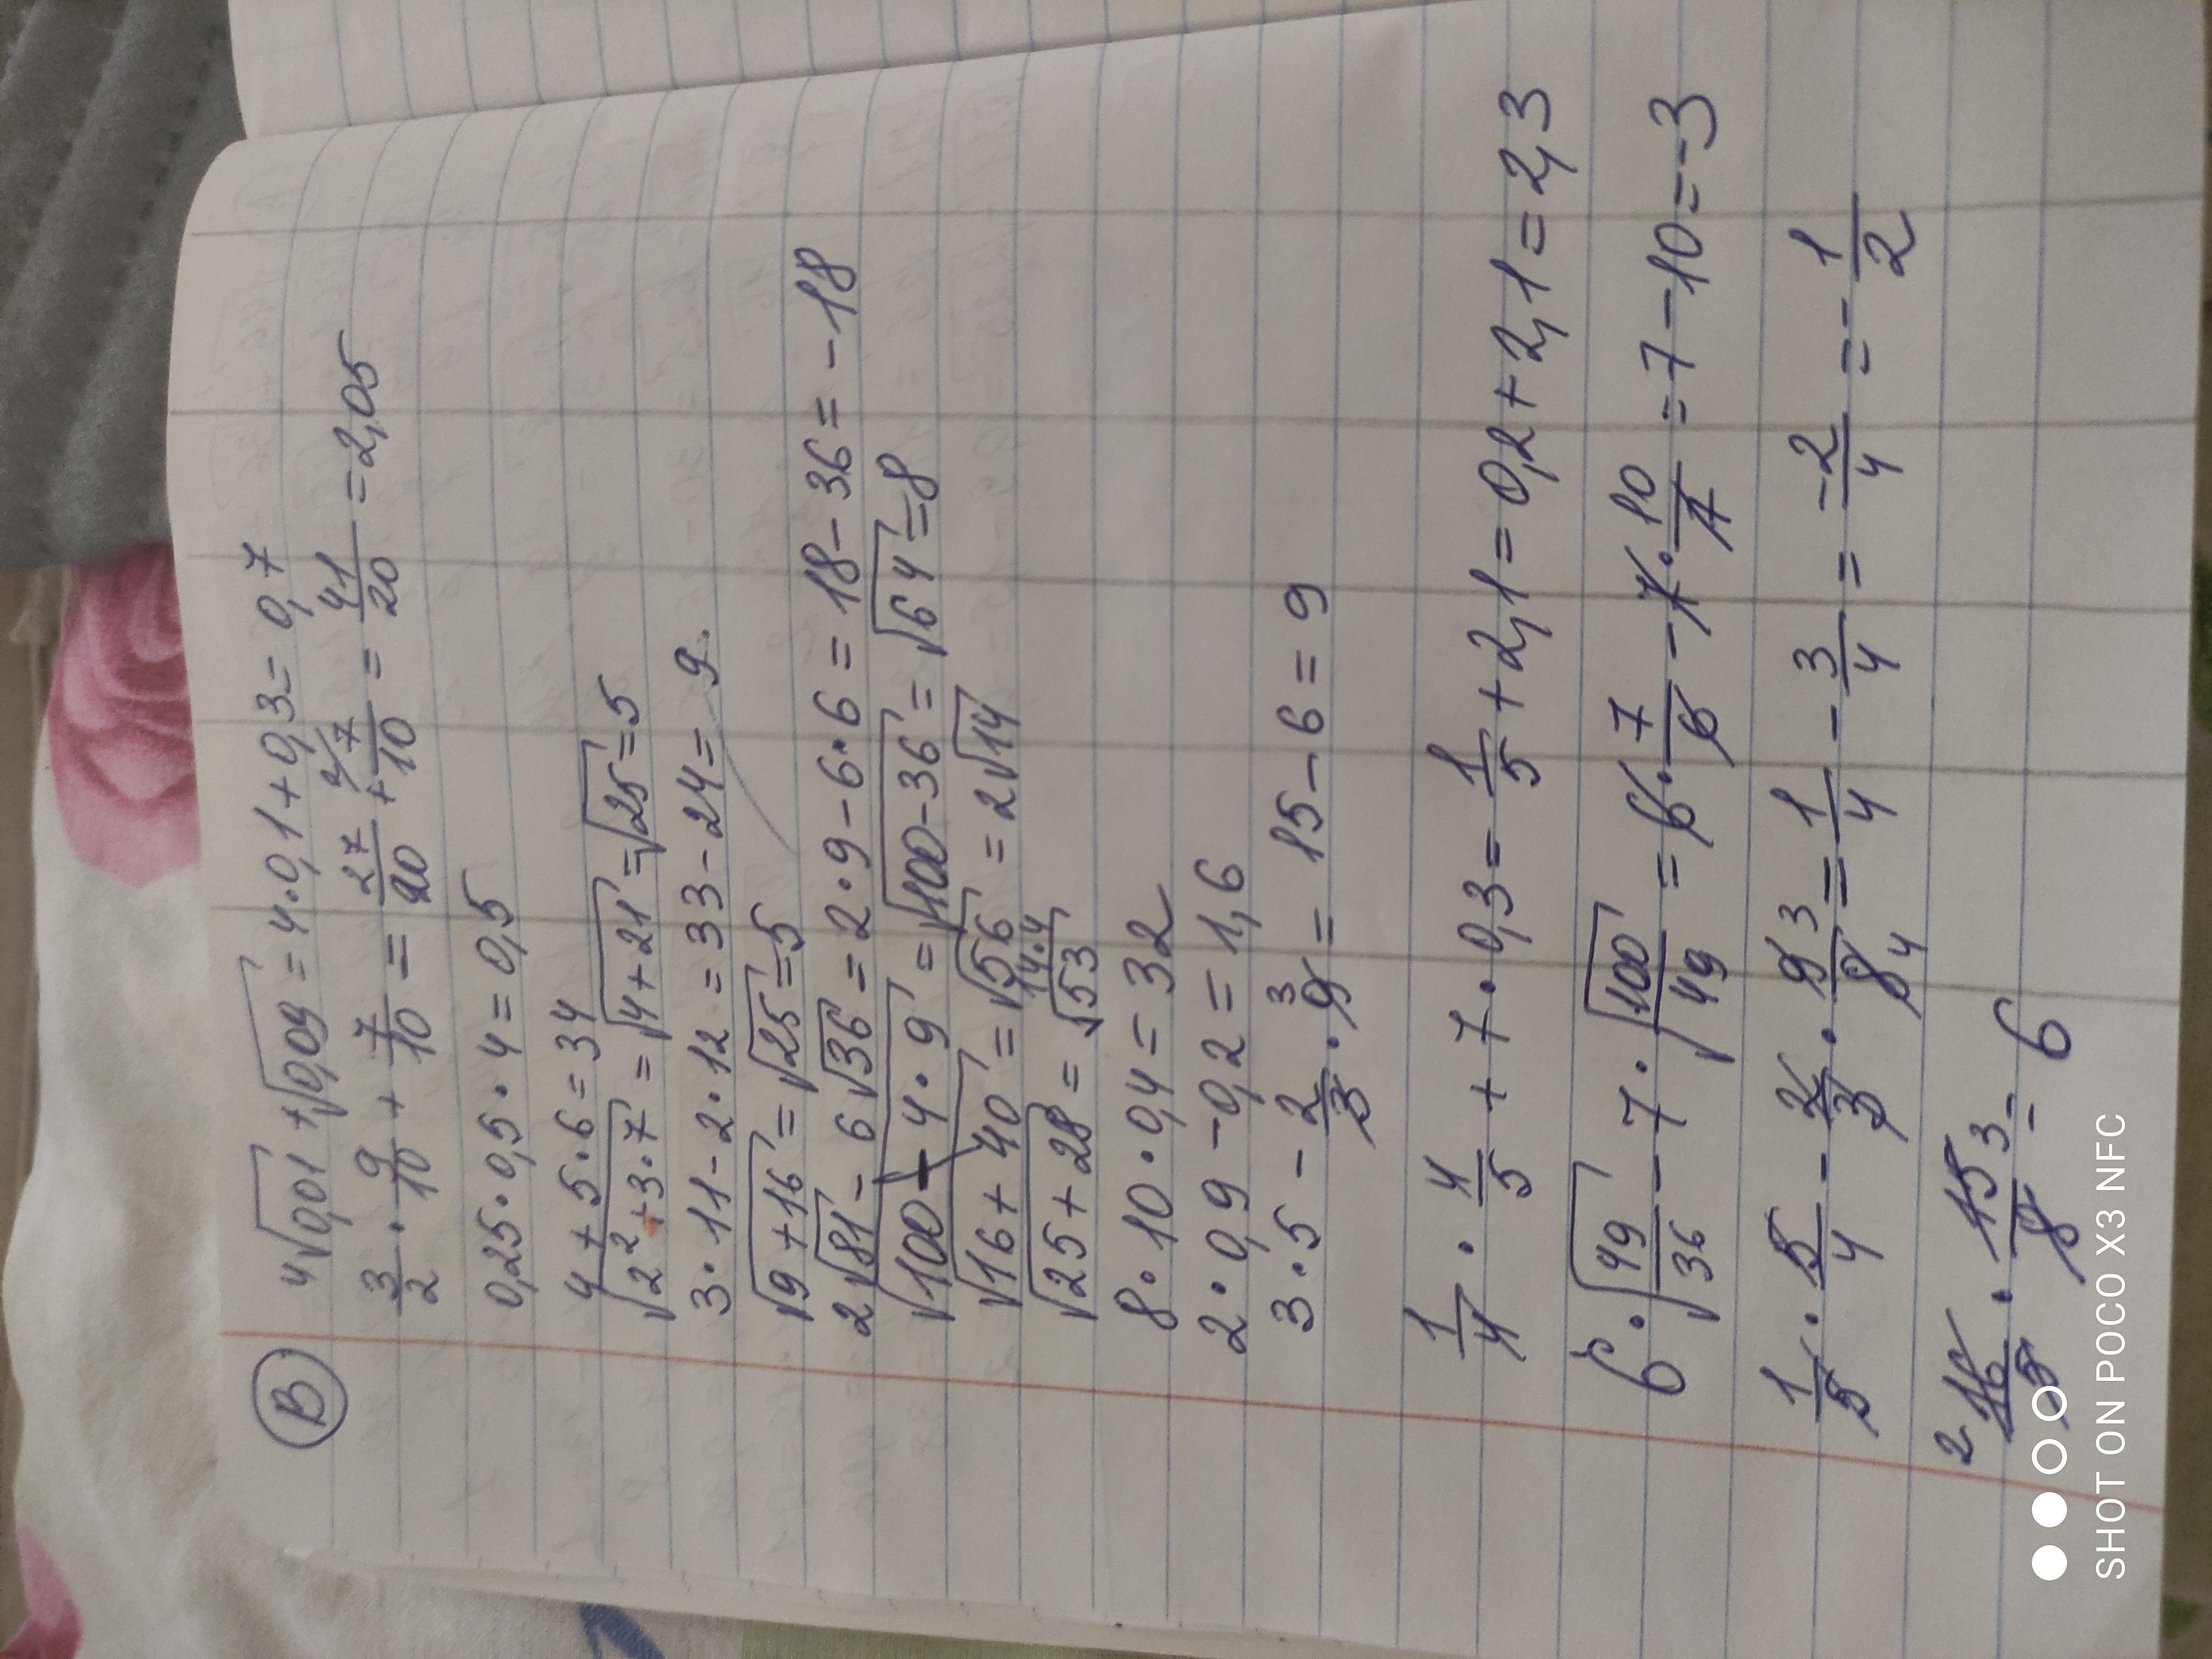 В
4√0,01 + √0,09 = 4·0,1+0,3= 0,7
3/2 · 9/10 + 7/10 = 27/20 + 2/ 7/10 = 41/20 = 2,05
0,25·0,5·4=0,5
4+5·6=34
√2²+3·7 = √4+21 = √25=5
3·11-2·12=33-24= 9.
√9+16 = √25=5
2√81 - 6√36 = 2·9-6·6=18-36= -18
√100-4·9 = √100-36 = √64=8
√16+40 = √56 = 2√14
14·4
√25+28 = √53
8·10·0,4=32
2·0,9-0,2=1,6
3·5 - 2/3 · 9 3 = 15-6=9
1/4 · 4/5 + 7·0,3= 1/5 +2,1= 0,2+2,1=2,3
6·√49/36 - 7·√100/49 = 6·7/6 - 7·10/7 =7-10=-3
1/5 · 5/4 - 2/3 · 9 3/8 4 = 1/4 - 3/4 = -2/4 = -1/2
2 16/5 · 15 3/8 = 6
SHOT ON POCO X3 NFC